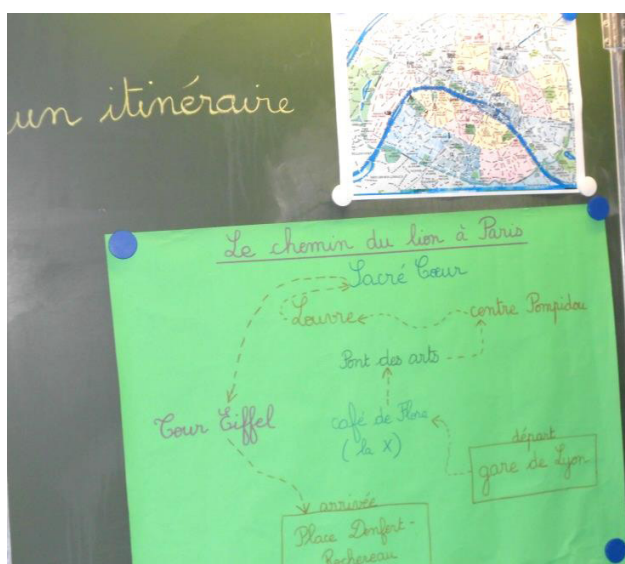 un itinéraire
Le chemin du lion à Paris
Sacré Cœur
Louvre
centre Pompidou
Pont des arts
Tour Eiffel
café de Flore
(la X)
départ
gare de Lyon
arrivée
Place Denfert-
Rochereau